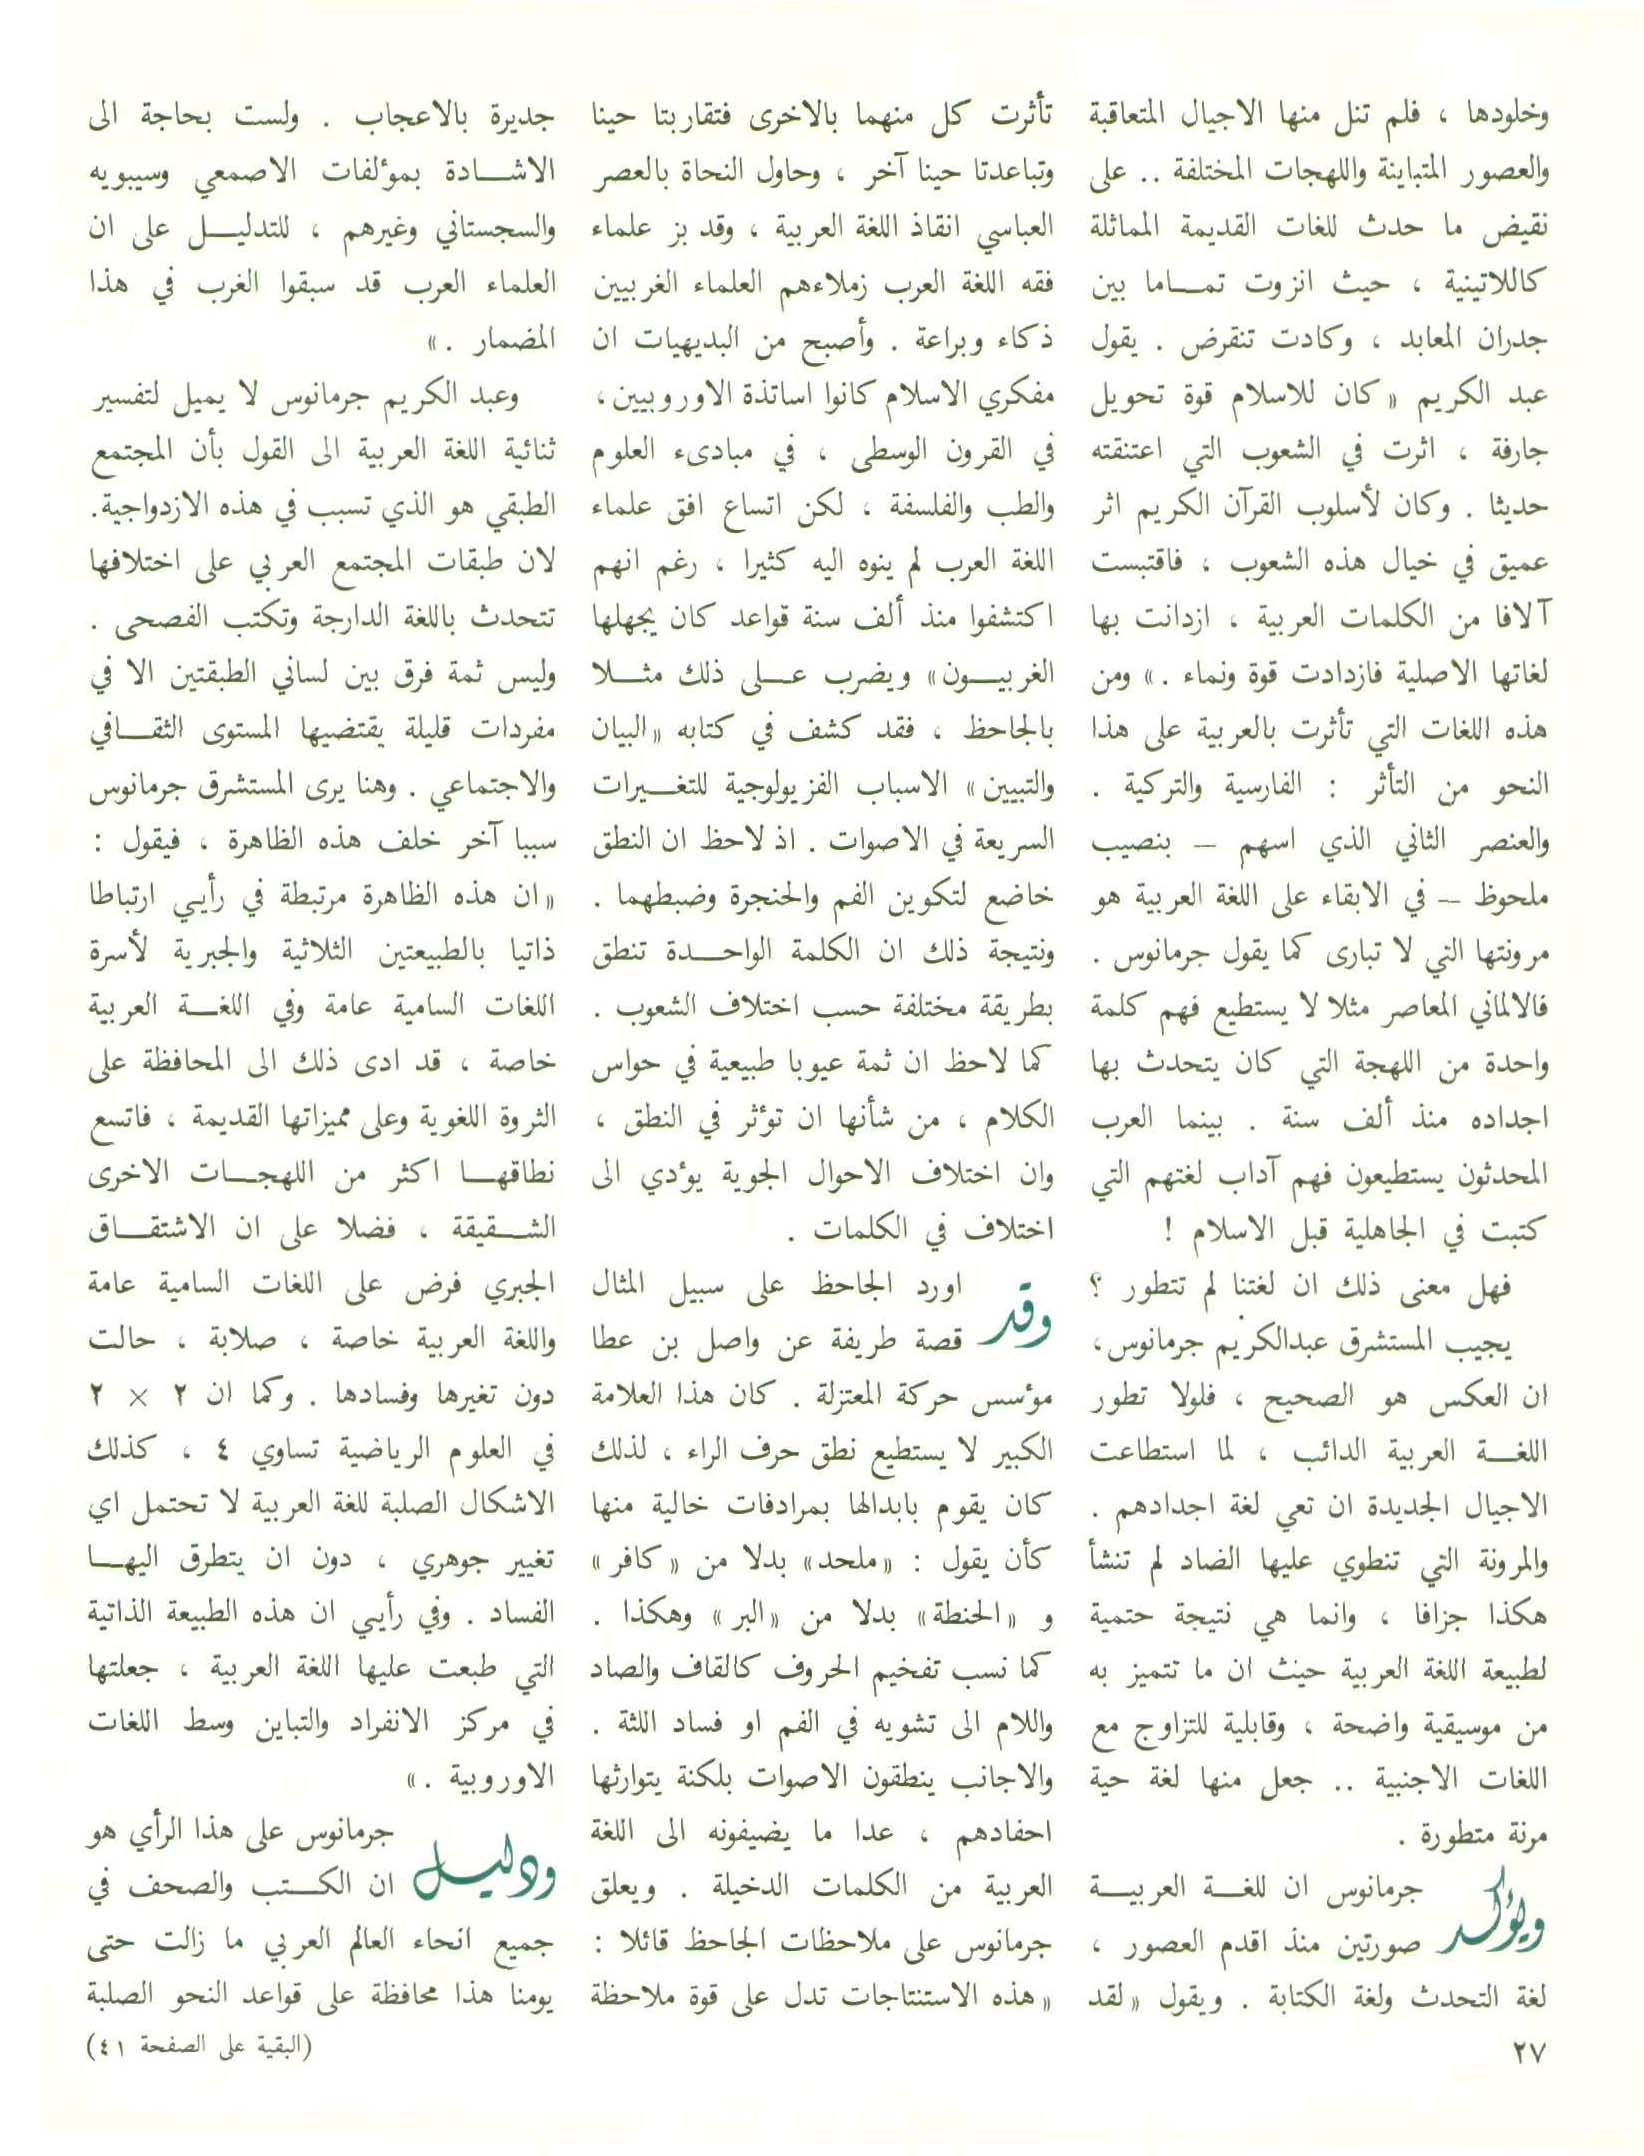 وخلودها ، فلم تنل منها الاجيال المتعاقبة
والعصور المتباينة واللهجات المختلفة .. على
نقيض ما حدث للغات القديمة المماثلة
كاللاتينية ، حيث انزوت تمـاما بين
جدران المعابد ، وكادت تنقرض . يقول
عبد الكريم «كان للاسلام قوة تحويل
جارفة ، اثرت في الشعوب التي اعتنقته
حديثا . وكان لأسلوب القرآن الكريم اثر
عميق في خيال هذه الشعوب ، فاقتبست
آلافا من الكلمات العربية ، ازدانت بها
لغاتها الاصلية فازدادت قوة ونماء .» ومن
هذه اللغات التي تأثرت بالعربية على هذا
النحو من التأثر : الفارسية والتركية .
والعنصر الثاني الذي اسهم – بنصيب
ملحوظ – في الابقاء على اللغة العربية هو
مرونتها التي لا تبارى كما يقول جرمانوس .
فالالماني المعاصر مثلا لا يستطيع فهم كلمة
واحدة من اللهجة التي كان يتحدث بها
اجداده منذ ألف سنة . بينما العرب
المحدثون يستطيعون فهم آداب لغتهم التي
كتبت في الجاهلية قبل الاسلام !
فهل معنى ذلك ان لغتنا لم تتطور ؟
يجيب المستشرق عبدالكريم جرمانوس،
ان العكس هو الصحيح ، فلولا تطور
اللغـة العربية الدائب ، لما استطاعت
الاجيال الجديدة ان تعي لغة اجدادهم .
والمرونة التي تنطوي عليها الضاد لم تنشأ
هكذا جزافا ، وانما هي نتيجة حتمية
لطبيعة اللغة العربية حيث ان ما تتميز به
من موسيقية واضحة ، وقابلية للتزاوج مع
اللغات الاجنبية .. جعل منها لغة حية
مرنة متطورة .
ويؤكد جرمانوس ان للغـة العربيـة
صورتين منذ اقدم العصور ،
لغة التحدث ولغة الكتابة . ويقول «لقد
تأثرت كل منهما بالاخرى فتقاربتا حينا
وتباعدتا حينا آخر ، وحاول النحاة بالعصر
العباسي انقاذ اللغة العربية ، وقد بز علماء
فقه اللغة العرب زملاءهم العلماء الغربيين
ذكاء وبراعة . وأصبح من البديهيات ان
مفكري الاسلام كانوا اساتذة الاوروبيين،
في القرون الوسطى ، في مبادىء العلوم
والطب والفلسفة ، لكن اتساع افق علماء
اللغة العرب لم ينوه اليه كثيرا ، رغم انهم
اكتشفوا منذ ألف سنة قواعد كان يجهلها
الغربيـون» ويضرب عـلى ذلك مثـلا
بالجاحظ ، فقد كشف في كتابه «البيان
والتبيين» الاسباب الفزيولوجية للتغـيرات
السريعة في الاصوات . اذ لاحظ ان النطق
خاضع لتكوين الفم والحنجرة وضبطهما .
ونتيجة ذلك ان الكلمة الواحـدة تنطق
بطريقة مختلفة حسب اختلاف الشعوب .
كما لاحظ ان ثمة عيوبا طبيعية في حواس
الكلام ، من شأنها ان تؤثر في النطق ،
وان اختلاف الاحوال الجوية يؤدي الى
اختلاف في الكلمات .
وقد اورد الجاحظ على سبيل المثال
قصة طريفة عن واصل بن عطا
مؤسس حركة المعتزلة . كان هذا العلامة
الكبير لا يستطيع نطق حرف الراء ، لذلك
كان يقوم بابدالها بمرادفات خالية منها
كأن يقول : «ملحد» بدلا من «كافر»
و «الحنطة» بدلا من «البر» وهكذا .
كما نسب تفخيم الحروف كالقاف والصاد
واللام الى تشويه في الفم او فساد اللثة .
والاجانب ينطقون الاصوات بلكنة يتوارثها
احفادهم ، عدا ما يضيفونه الى اللغة
العربية من الكلمات الدخيلة . ويعلق
جرمانوس على ملاحظات الجاحظ قائلا :
«هذه الاستنتاجات تدل على قوة ملاحظة
جديرة بالاعجاب . ولست بحاجة الى
الاشـادة بمؤلفات الاصمعي وسيبويه
والسجستاني وغيرهم ، للتدليـل على ان
العلماء العرب قد سبقوا الغرب في هذا
المضمار .»
وعبد الكريم جرمانوس لا يميل لتفسير
ثنائية اللغة العربية الى القول بأن المجتمع
الطبقي هو الذي تسبب في هذه الازدواجية.
لان طبقات المجتمع العربي على اختلافها
تتحدث باللغة الدارجة وتكتب الفصحى .
وليس ثمة فرق بين لساني الطبقتين الا في
مفردات قليلة يقتضيها المستوى الثقـافي
والاجتماعي . وهنا يرى المستشرق جرمانوس
سببا آخر خلف هذه الظاهرة ، فيقول :
«ان هذه الظاهرة مرتبطة في رأيي ارتباطا
ذاتيا بالطبيعتين الثلاثية والجبرية لأسرة
اللغات السامية عامة وفي اللغـة العربية
خاصة ، قد ادى ذلك الى المحافظة على
الثروة اللغوية وعلى مميزاتها القديمة ، فاتسع
نطاقهـا اكثر من اللهجـات الاخرى
الشـقيقة ، فضلا على ان الاشتقـاق
الجبري فرض على اللغات السامية عامة
واللغة العربية خاصة ، صلابة ، حالت
دون تغيرها وفسادها . وكما ان ٢ × ٢
في العلوم الرياضية تساوي ٤ ، كذلك
الاشكال الصلبة للغة العربية لا تحتمل اي
تغيير جوهري ، دون ان يتطرق اليهـا
الفساد . وفي رأيي ان هذه الطبيعة الذاتية
التي طبعت عليها اللغة العربية ، جعلتها
في مركز الانفراد والتباين وسط اللغات
الاوروبية .»
ودليل جرمانوس على هذا الرأي هو
ان الكـتب والصحف في
جميع انحاء العالم العربي ما زالت حتى
يومنا هذا محافظة على قواعد النحو الصلبة
(البقية على الصفحة ٤١)
٢٧